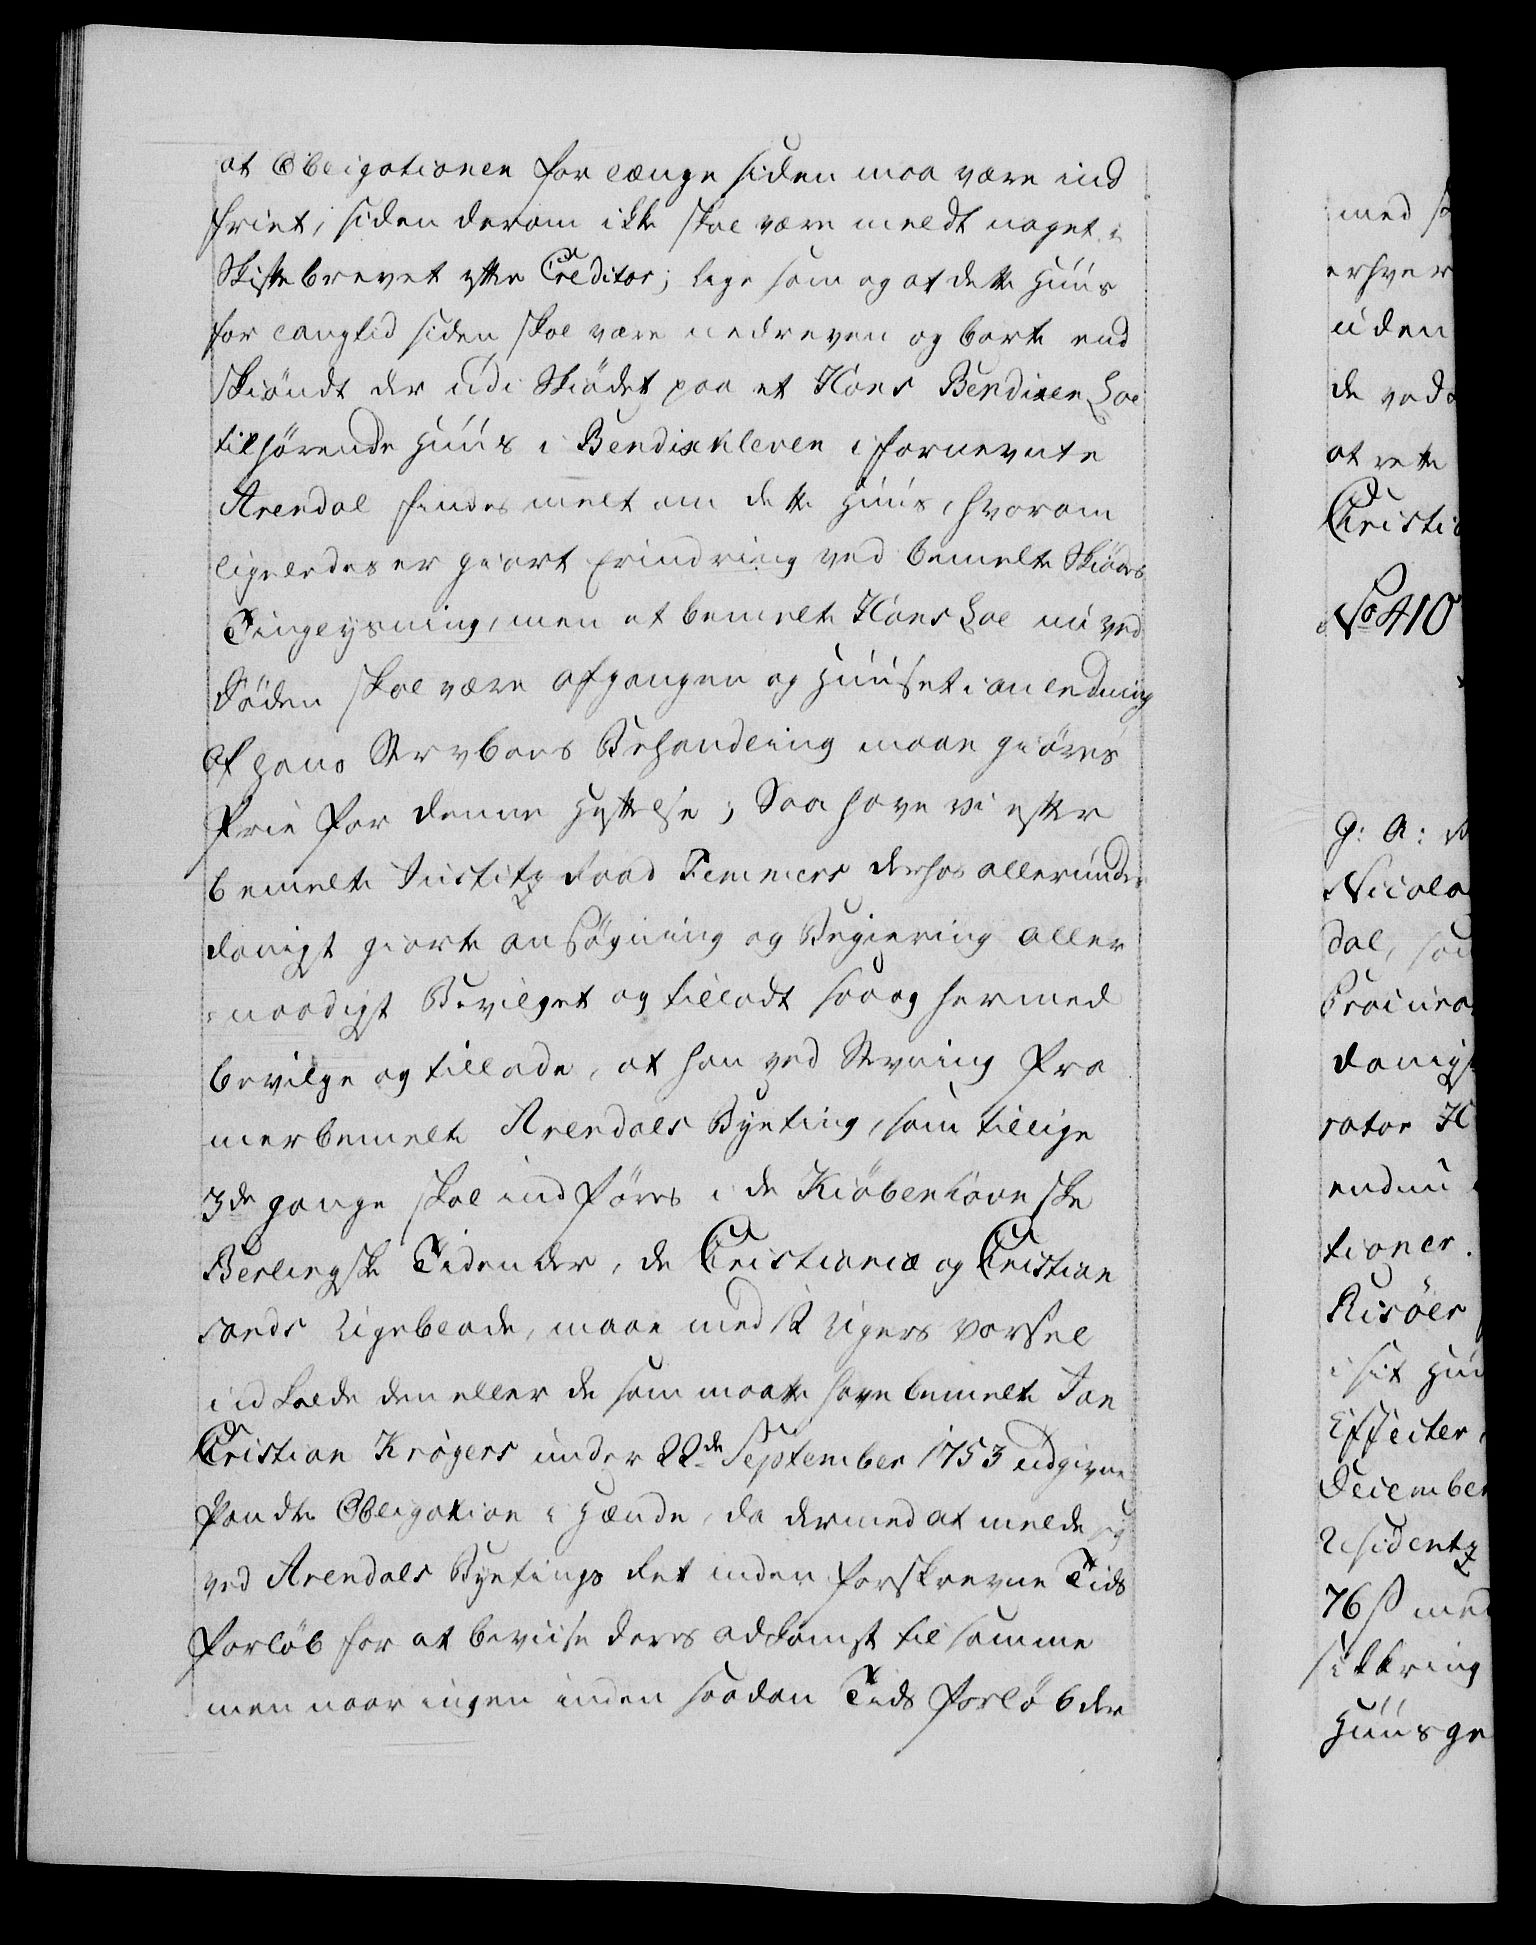 at Obligationen for længe siden maa være ind
friet, siden derom ikke skal være meldt noget i
Skiftebrevet efter Creditor; lige som og at dette Huus
for langtid siden skal være nedreven og borte end
skiøndt der udi Skiødet paa et Hans Bendixen Loe
tilhørende Huus i Bendixkleven i fornevnte
Arendal findes melt om dette Huus, hvorom
ligeledes er giort Erindring ved bemelte Skiødes
Tinglysning, men at bemelte Hans Loe nu ved
Døden skal være afgangen og Huuset i anledning
af hans Stervboes Behandling maae giøres
frie for denne Heftelse; Saa have vi efter
bemelte Justitz Raad Femmers derhos allerunder
danigst giorte ansøgning og Begiering aller
naadigst Bevilget og tilladt saa og hermed
bevilge og tillade, at han ved Stevning fra
merbemelte Arendals Byeting, som tillige
3de gange skal indføres i de Kiøbenhavnske
Berlingske Tidender, de Christiania og Christian
sands Ugeblade, maae med 12 Ugers Varsel
indkalde den eller de som maatte have bemelte Jan
Christian Krøgers under 22de September 1753 udgivne
Pandte Obligation i Hænde, da dermed at melde sig
ved Arendals Byetings Ret inden forskrevne Tids
forløb for at beviise deres adkomst til samme
men naar ingen inden saadan Tids forløb der
med
erhver
uden
de ved
at rette
Christia
No 410
G: A:
Nicola
dal,
Procura
danigs
rator H
endnu
tioner.
Risøer
i sit Huu
Effecter,
December
Residentz
76 ß med
sikkring
Huusge